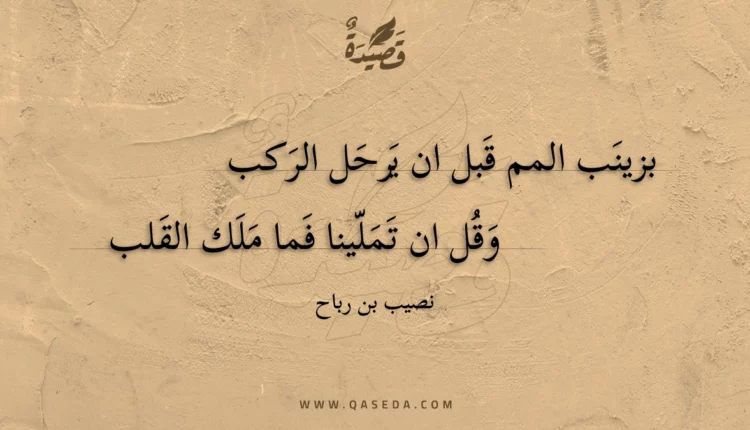 قَصِيدَةٌ
بزينَب المم قَبل ان يَرحَل الرَكب
وَقُل ان تَمَلّينا فَما مَلَك القَلب
نصيب بن رباح
WWW.QASEDA.COM